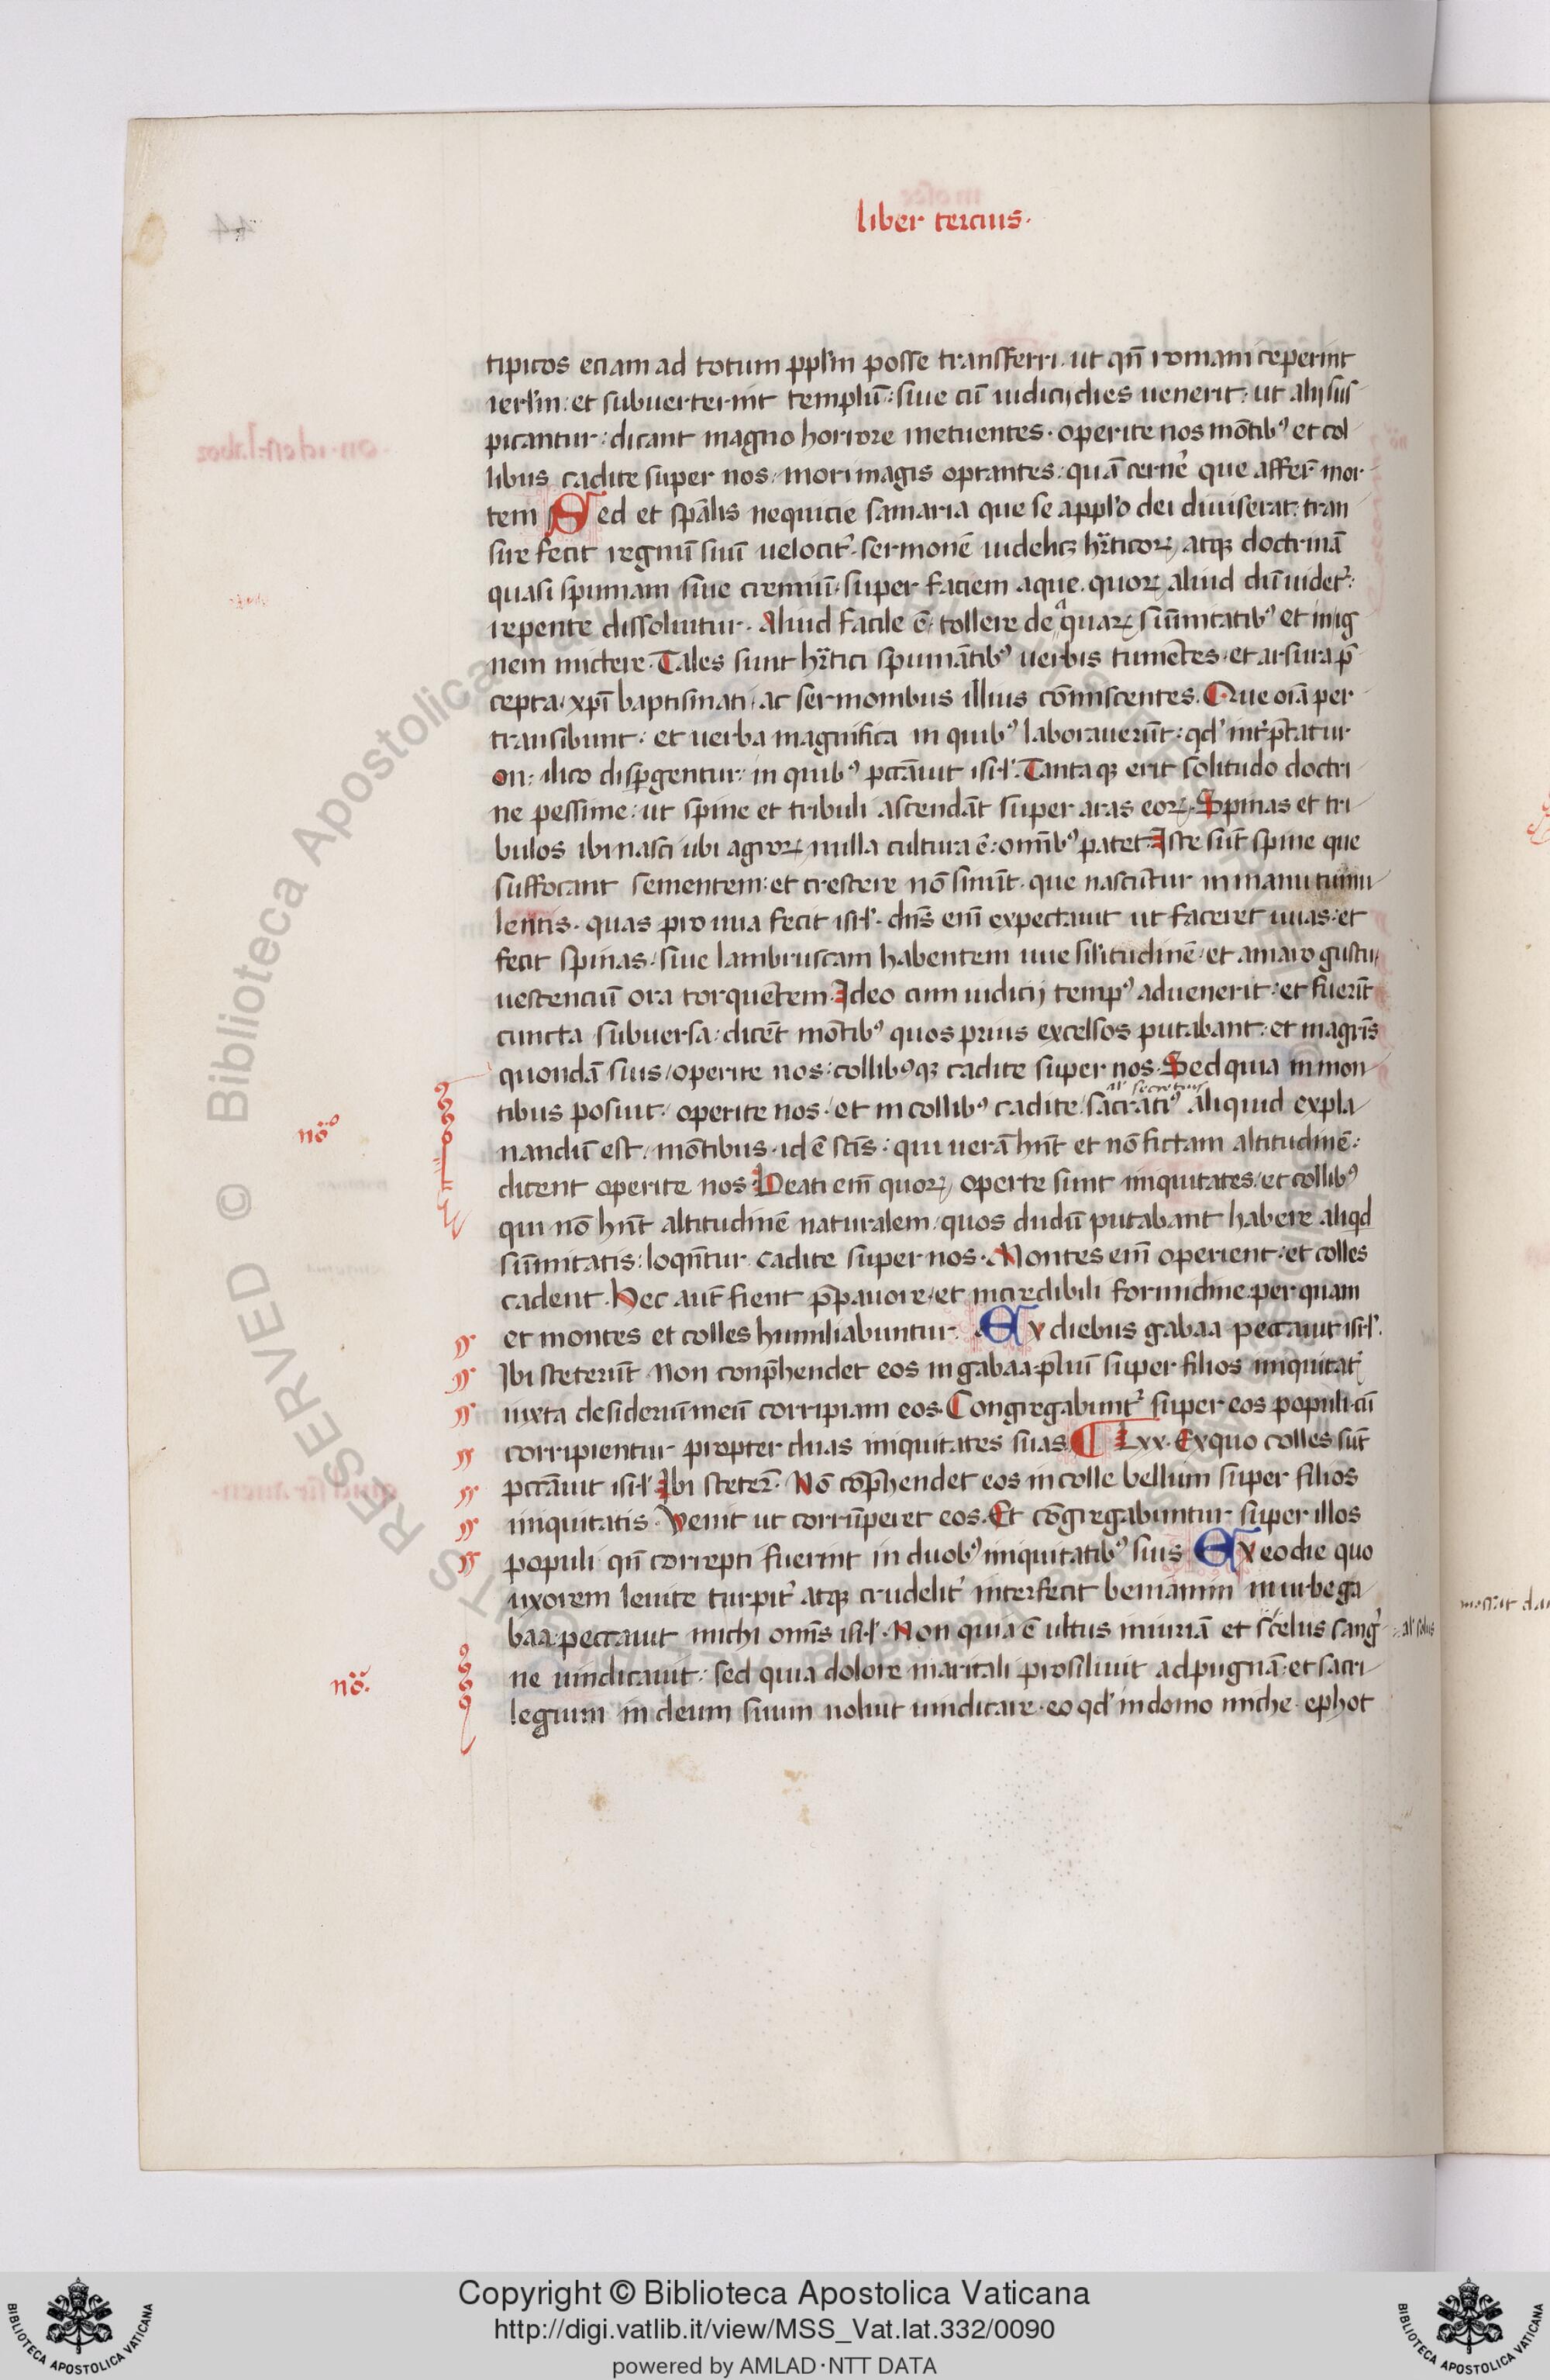 liber tercius.
tipicos eciam ad totum pplm̄ posse transferri. ut qn̄ romani ceperint
ierlm̄: et subuerterint templū: siue cū iudicij dies uenerit: ut alij sus
picantur: dicant magno horrore metuentes. operite nos mōtibꝰ et col
libus cadite super nos, mori magis optantes: quā cerne᷑ que affer̄ mor
tem Sed et spālis nequicie samaria que se a pplo dei diuiserat: tran
sire fecit regnū suū uelocit᷑. sermonē uidelicꝫ hr̄ticoꝝ atqꝫ doctrinā
quasi spumam siue cremiū. super faciem aque. quoꝝ aliud dū uidet᷑:
repente dissoluitur. Aliud facile ē: tollere de aquaꝝ sūmitatibꝰ et in ig
nem mictere. Tales sunt hr̄tici spumātibꝰ uerbis tumētes. et arsura p̄
cepta. xp̄i baptismati. ac sermonibus illius cōmiscentes. Que oīa per
transibunt. et uerba magnifica in quibꝰ laborauerūt: qd' int᷑p̄tatur
on: ilico disp̄gentur: in quibꝰ pccāuit isrl'. Tantaqꝫ erit solitudo doctri
ne pessime: ut spine et tribuli ascendāt super aras eoꝝ. Spinas et tri
bulos ibi nasci ubi agroꝝ nulla cultura ē: omībꝰ patet. Iste sūt spine que
suffocant sementem: et crescere nō sinūt. que nascūtur in manu timu
lentis. quas pro uua fecit isrl'. dn̄s enī expectauit ut faceret uuas: et
fecit spinas. siue lambruscam habentem uue silitudinē. et amaro gustu
uescenciū ora torquētem. Ideo cum iudicij tempꝰ aduenerit: et fuerīt
cuncta subuersa: dicēt mōtibꝰ quos prius excelsos putabant: et magrīs
quondā suis. operite nos: collibꝰqꝫ cadite super nos. Sed quia in mon
al' secretius
tibus posuit. operite nos. et in collibꝰ cadite: sacraciꝰ aliquid expla
nandū est. mōtibus. id ē scīs: qui uerā hn̄t et nō fictam altitudinē:
dicent operite nos. Beati enī quoꝝ operte sunt iniquitates. et collibꝰ
nō
qui nō hn̄t altitudinē naturalem. quos dudū putabant habere aliqd
sūmitatis: loqūtur cadite super nos. Montes enī operient: et colles
cadent. Hec aut̄ fient p̄ pauore. et incredibili formidine: per quam
et montes et colles humiliabuntur. Ex diebus gabaa peccauit isrl'.
Ibi steterūt. Non conp̄hendet eos in gabaa. p̄liū super filios iniquitat᷑
iuxta desideriū meū corripiam eos. Congregabunt᷑ super eos populi. cū
corripientur propter duas iniquitates suas. Lxx. Ex quo colles sūt
pccāuit isrl'. Ibi steter̄. Nō cōp̄hendet eos in colle bellum super filios
iniquitatis. Venit ut corrūperet eos. Et cōgregabuntur super illos
populi qn̄ correpti fuerint in duobꝰ iniquitatibꝰ suis. Ex eo die quo
uxorem leuite turpit᷑ atqꝫ crudelit᷑ interfecit beniamin in urbe ga
baa: peccauit michi omīs isrl'. Non quia ē ultus iniuriā et scelus sang᷑
al' solus
ne uindicauit: sed quia dolore maritali prosiluit ad pugnā: et sacri
nō.
legium in deum suum noluit uindicare. eo qd' in domo miche. ephot
© Biblioteca Apostolica Vaticana
Copyright © Biblioteca Apostolica Vaticana
http://digi.vatlib.it/view/MSS_Vat.lat.332/0090
powered by AMLAD·NTT DATA
BIBLIOTECA APOSTOLICA VATICANA
BIBLIOTECA APOSTOLICA VATICANA